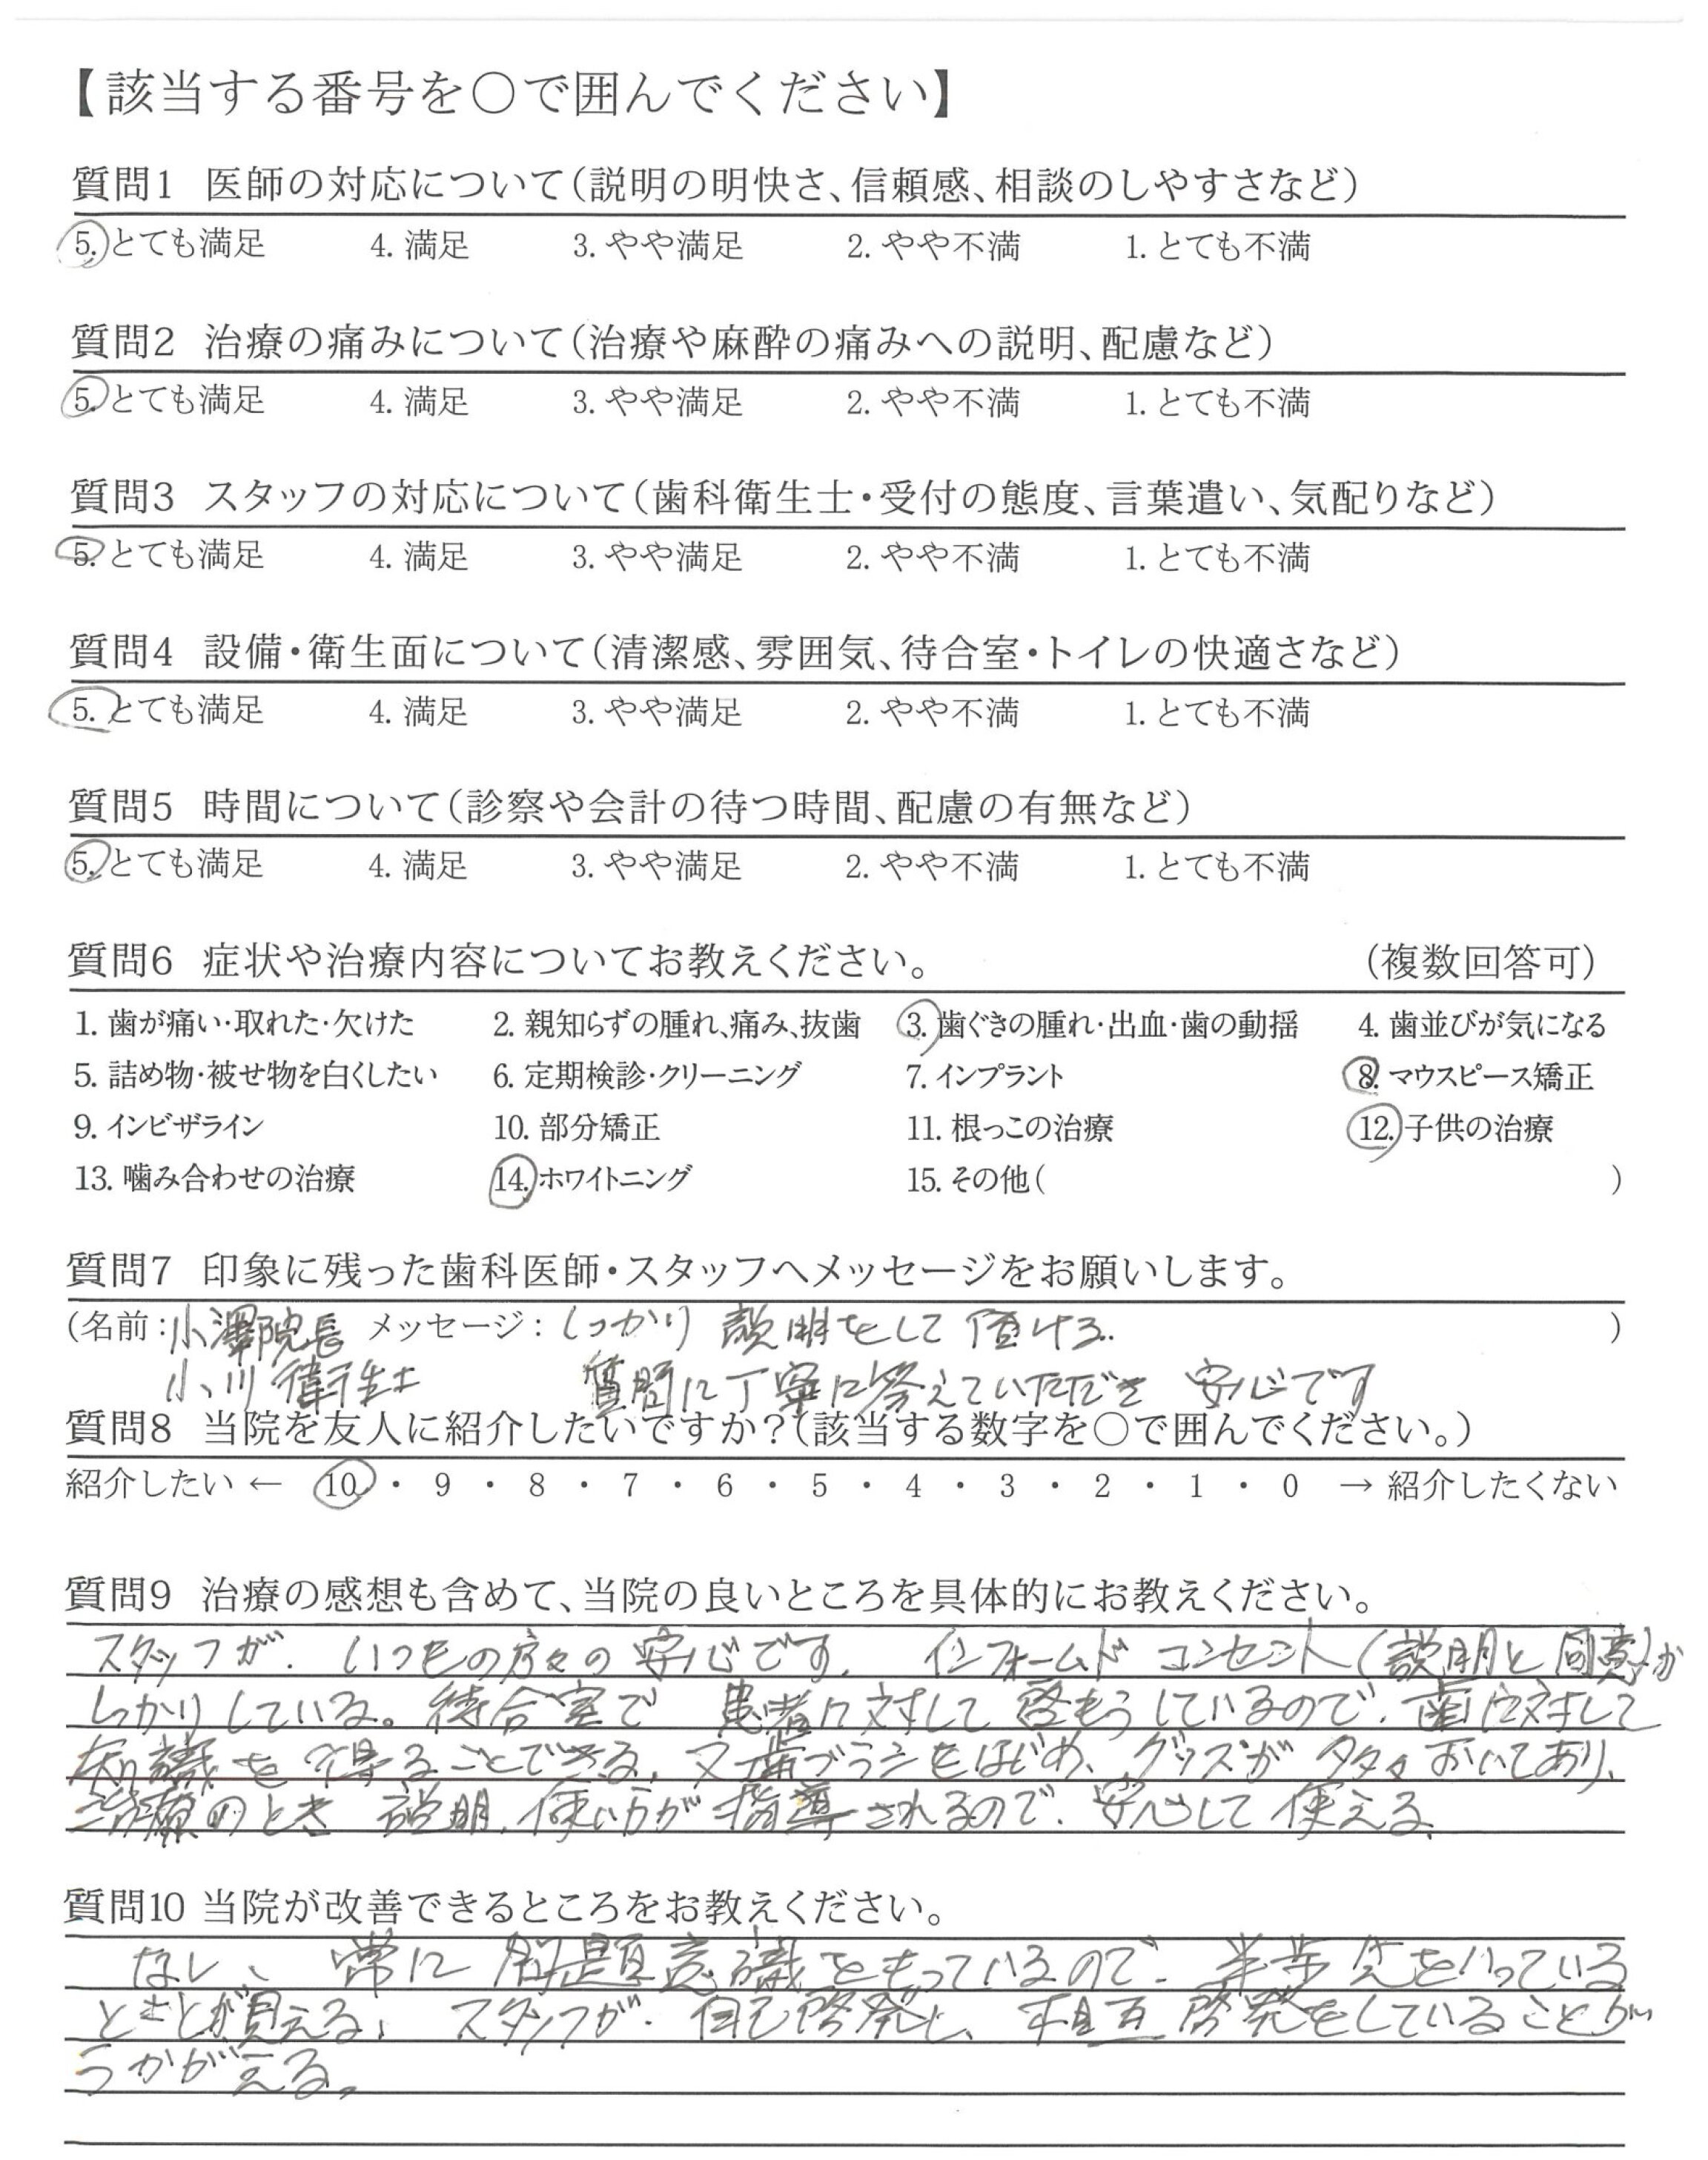 【該当する番号を○で囲んでください】
質問1 医師の対応について(説明の明快さ、信頼感、相談のしやすさなど)
5. とても満足 4. 満足 3. やや満足 2. やや不満 1. とても不満
質問2 治療の痛みについて(治療や麻酔の痛みへの説明、配慮など)
5. とても満足 4. 満足 3. やや満足 2. やや不満 1. とても不満
質問3 スタッフの対応について(歯科衛生士・受付の態度、言葉遣い、気配りなど)
5. とても満足 4. 満足 3. やや満足 2. やや不満 1. とても不満
質問4 設備・衛生面について(清潔感、雰囲気、待合室・トイレの快適さなど)
5. とても満足 4. 満足 3. やや満足 2. やや不満 1. とても不満
質問5 時間について(診察や会計の待つ時間、配慮の有無など)
5. とても満足 4. 満足 3. やや満足 2. やや不満 1. とても不満
質問6 症状や治療内容についてお教えください。 (複数回答可)
1. 歯が痛い・取れた・欠けた 2. 親知らずの腫れ、痛み、抜歯 3. 歯ぐきの腫れ・出血・歯の動揺 4. 歯並びが気になる
5. 詰め物・被せ物を白くしたい 6. 定期検診・クリーニング 7. インプラント 8. マウスピース矯正
9. インビザライン 10. 部分矯正 11. 根っこの治療 12. 子供の治療
13. 噛み合わせの治療 14. ホワイトニング 15. その他( )
質問7 印象に残った歯科医師・スタッフへメッセージをお願いします。
(名前:小澤院長 メッセージ:しっかり説明をして頂ける. )
小川衛生士 質問に丁寧に答えていただき 安心です
質問8 当院を友人に紹介したいですか?(該当する数字を○で囲んでください。)
紹介したい ← 10 ・ 9 ・ 8 ・ 7 ・ 6 ・ 5 ・ 4 ・ 3 ・ 2 ・ 1 ・ 0 → 紹介したくない
質問9 治療の感想も含めて、当院の良いところを具体的にお教えください。
スタッフが、いつもの方々の安心です。インフォームド コンセント(説明と同意)が
しっかりしている。待合室で 患者に対して啓もうしているので、歯に対して
知識を得ることできる、又歯ブラシをはじめ、グッズが多々おいてあり、
治療のとき 説明、使い方が指導されるので、安心して使える。
質問10 当院が改善できるところをお教えください。
なし、常に問題意識をもっているので、半歩先をいっている
ことが見える。スタッフが、自己啓発し、相互啓発をしていることが
うかがえる。